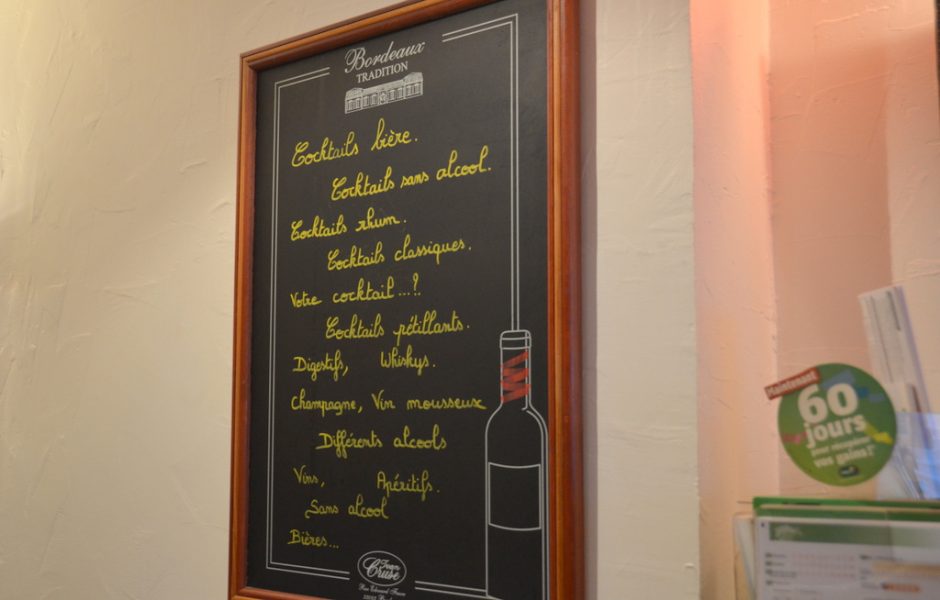 Bordeaux
TRADITION
Cocktails bière.
Cocktails sans alcool.
Cocktails rhum.
Cocktails classiques.
Votre cocktail...?
Cocktails pétillants.
Digestifs, Whiskys.
Champagne, Vin mousseux
Différents alcools
Vins, Apéritifs.
Sans alcool
Bières...
Cruse
Maintenant
60
jours
vos gains!